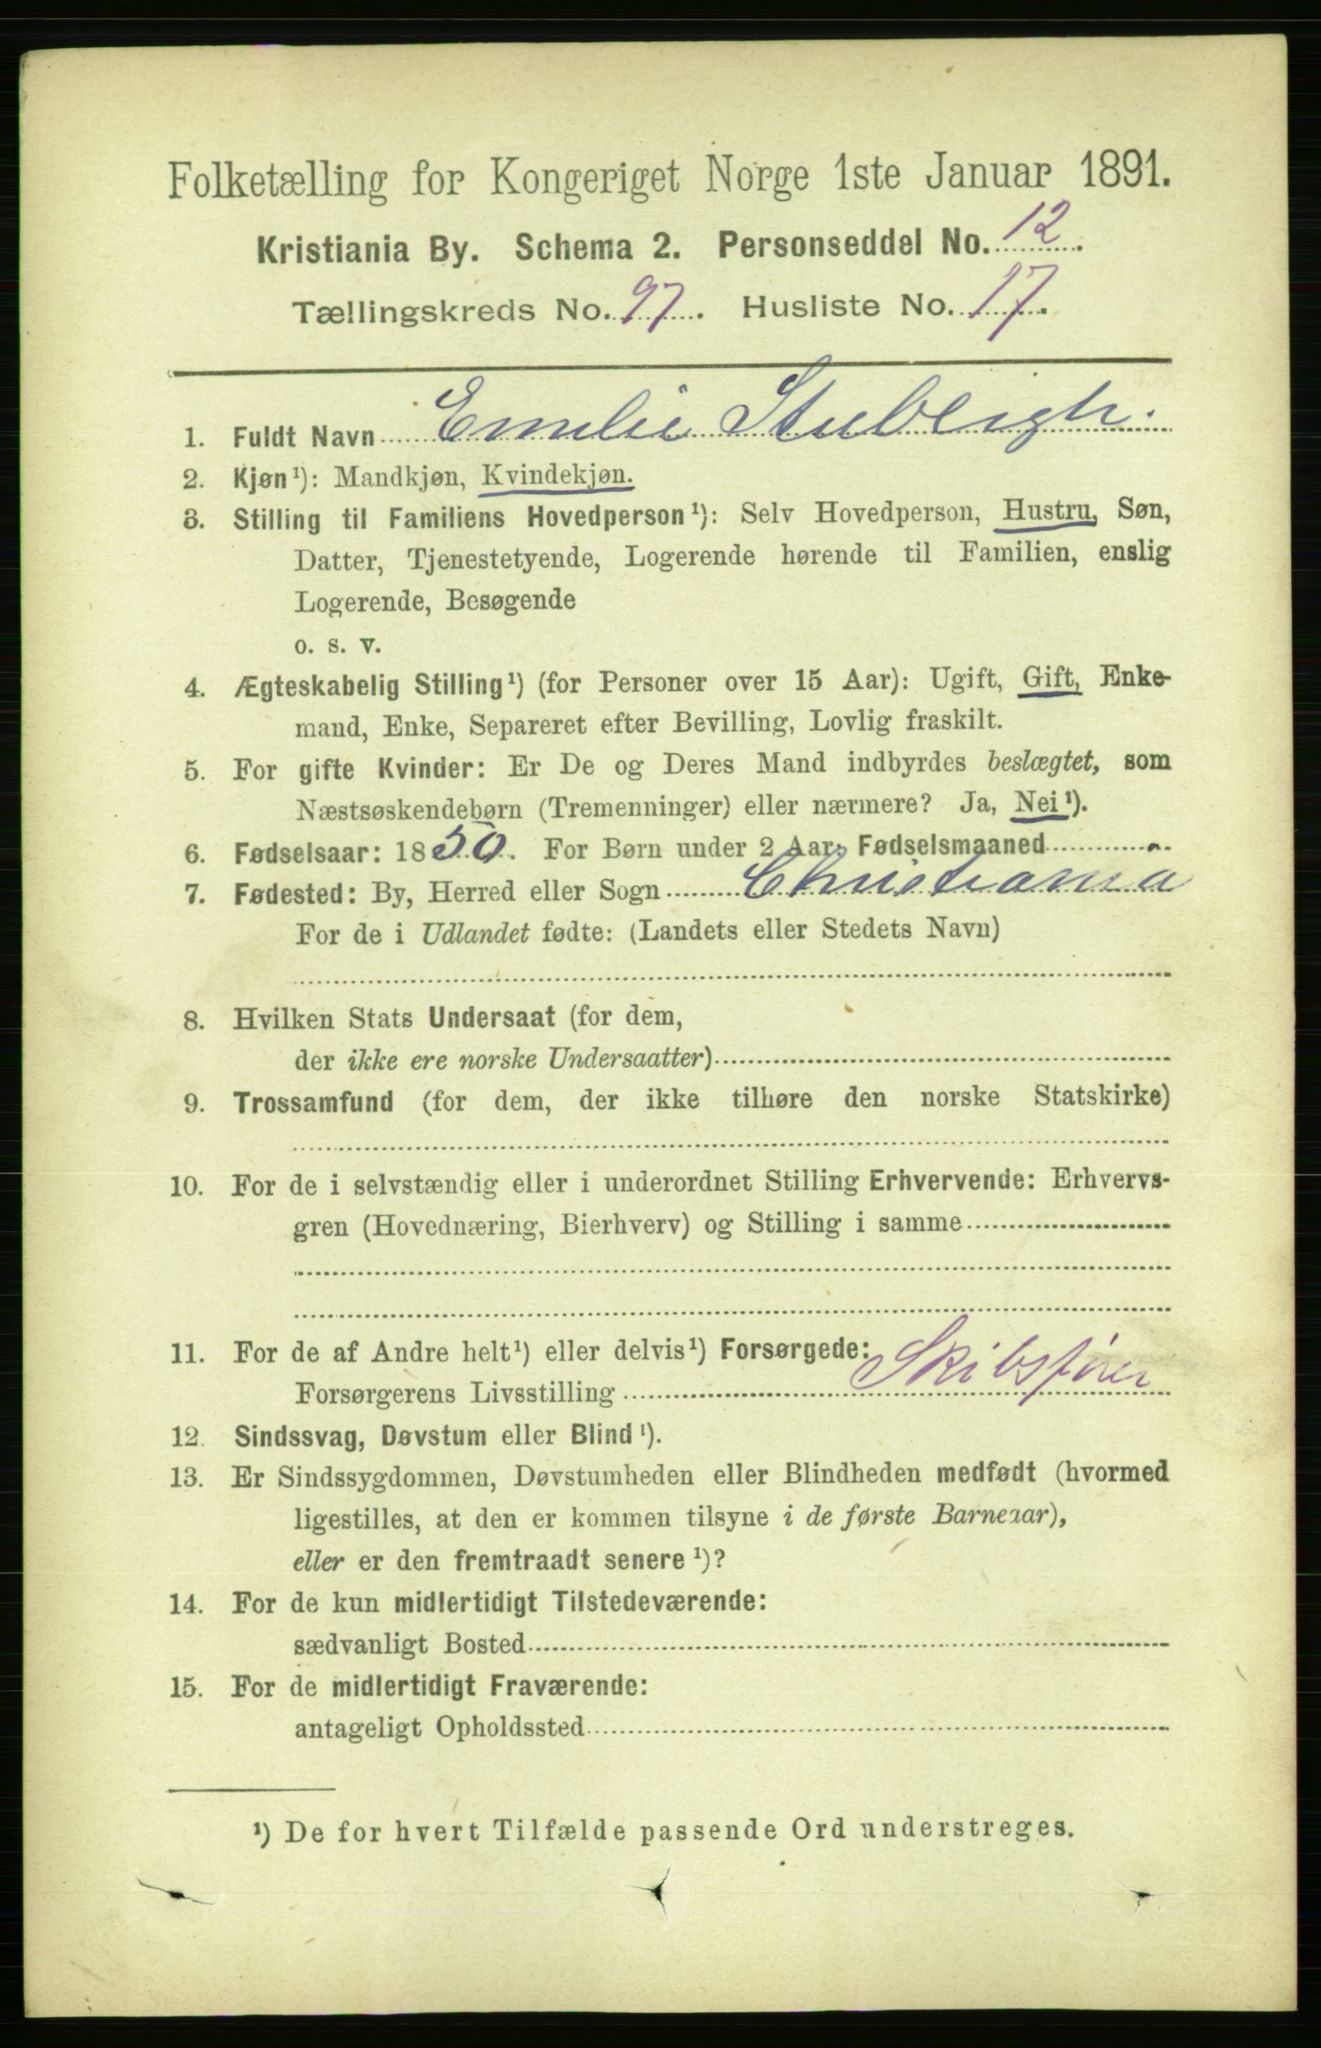 Folketælling for Kongeriget Norge 1ste Januar 1891.
Kristiania By. Schema 2. Personseddel No. 12.
Tællingskreds No. 97. Husliste No. 17.
1. Fuldt Navn Emilie Stubleigh.
2. Kjøn¹): Mandkjøn, Kvindekjøn.
3. Stilling til Familiens Hovedperson¹): Selv Hovedperson, Hustru, Søn,
Datter, Tjenestetyende, Logerende hørende til Familien, enslig
Logerende, Besøgende
o. s. v.
4. Ægteskabelig Stilling¹) (for Personer over 15 Aar): Ugift, Gift, Enke-
mand, Enke, Separeret efter Bevilling, Lovlig fraskilt.
5. For gifte Kvinder: Er De og Deres Mand indbyrdes beslægtet, som
Næstsøskendebørn (Tremenninger) eller nærmere? Ja, Nei¹).
6. Fødselsaar: 1850. For Børn under 2 Aar: Fødselsmaaned
7. Fødested: By, Herred eller Sogn Christiania
For de i Udlandet fødte: (Landets eller Stedets Navn)
8. Hvilken Stats Undersaat (for dem,
der ikke ere norske Undersaatter)
9. Trossamfund (for dem, der ikke tilhøre den norske Statskirke)
10. For de i selvstændig eller i underordnet Stilling Erhvervende: Erhvervs-
gren (Hovednæring, Bierhverv) og Stilling i samme
11. For de af Andre helt¹) eller delvis¹) Forsørgede:
Forsørgerens Livsstilling Skibsfører
12. Sindssvag, Døvstum eller Blind¹).
13. Er Sindssygdommen, Døvstumheden eller Blindheden medfødt (hvormed
ligestilles, at den er kommen tilsyne i de første Barneaar),
eller er den fremtraadt senere¹)?
14. For de kun midlertidigt Tilstedeværende:
sædvanligt Bosted
15. For de midlertidigt Fraværende:
antageligt Opholdssted
¹) De for hvert Tilfælde passende Ord understreges.